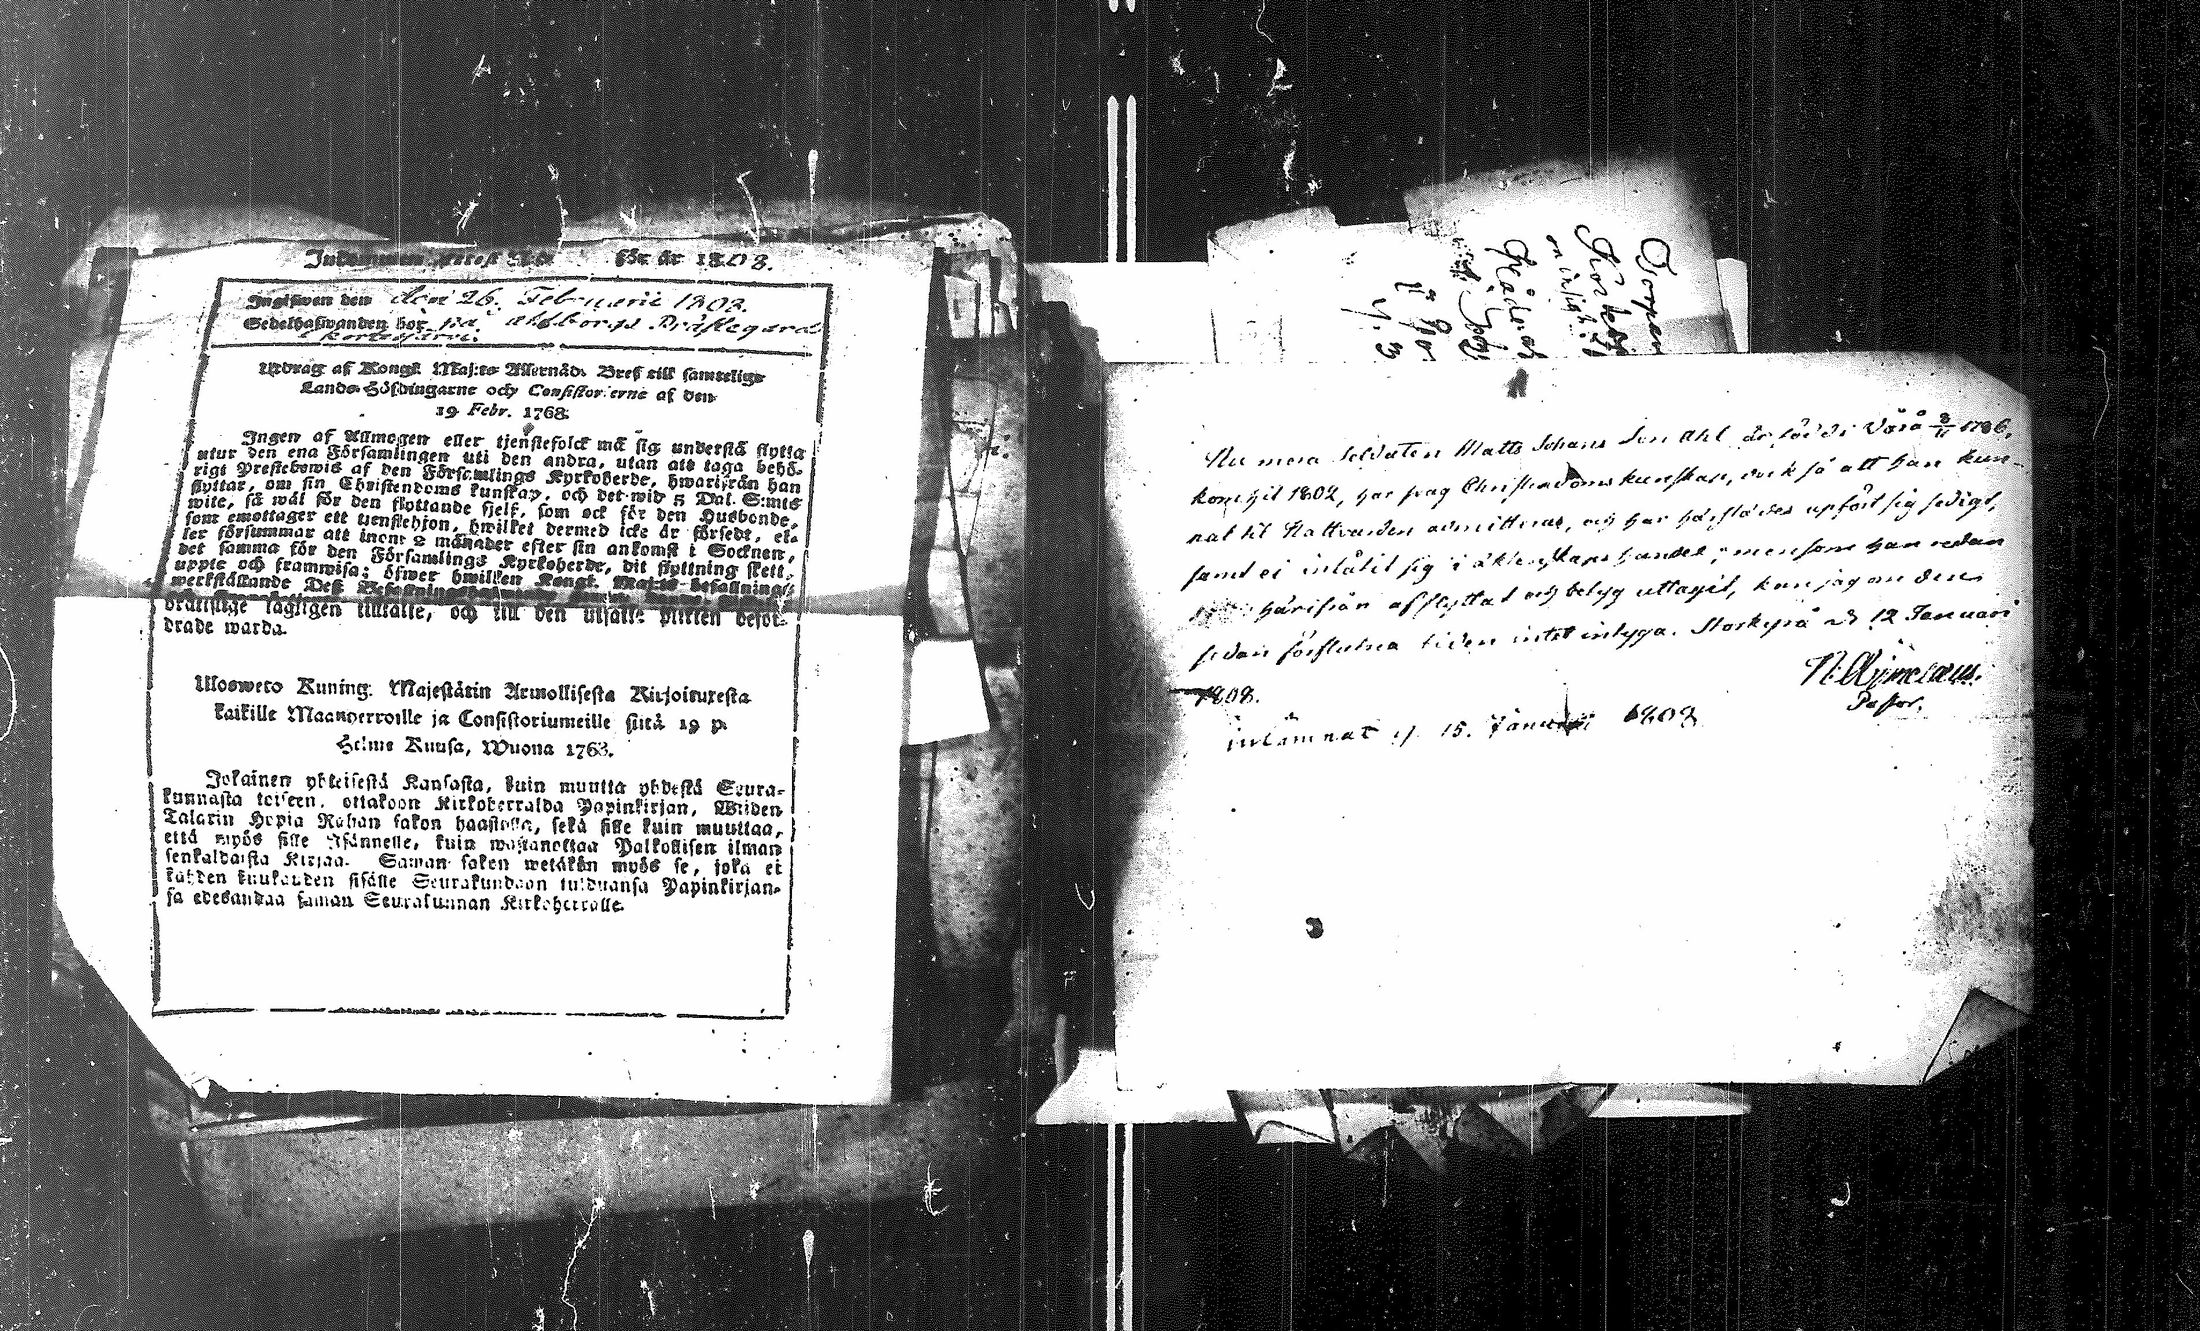 för år 1808.
Ingifwen den den 26. Februarii 1808.
Sedelhafwanden bor på Ahlborgs Prästegård
i Kortesjärvi.
Utdrag af Kongl. Maj:ts Allernåd. Bref till samtelige
Lands-Höfdingarne och Consistorierne af den
19 Febr. 1768.
Ingen af Allmogen eller tjenstefolck må sig understå flytta
utur den ena Församlingen uti den andra, utan att taga behö-
rigt Prestebewis af den Församlings Kyrkoherde, hwarifrån han
flyttar, om sin Christendoms kunskap, och det wid 5 Dal. S:mts
wite, så wäl för den flyttande sjelf, som ock för den Husbonde,
som emottager ett tjenstehjon, hwilket dermed icke är försedt, el-
ler försummar att inom 2 månader efter sin ankomst i Socknen,
det samma för den Församlings Kyrkoherde, dit flyttning skett,
uppte och framwisa; öfwer hwilken Kongl. Maj:ts befallning
werkställande Deß Befallningshafwande
draftlige lagligen tilltalte, och till den utsatte plitten befor-
drade warda.
Ulosweto Kuning. Majestätin Armollisesta Kirjoituxesta
kaikille Maanherroille ja Consistoriumeille siitä 19 p.
Helme Kuusa, Wuona 1768.
Jokainen yhteisestä Kansasta, kuin muutta yhdestä Seura-
kunnasta toiseen, ottakoon Kirkoherralda Papinkirjan, Wiiden
Talarin Hopia Rahan sakon haastolla, sekä sille kuin muuttaa,
että myös sille Isännelle, kuin wastanottaa Palkollisen ilman
senkaldaista Kirjaa. Saman saken wetäkän myös se, joka ei
kahden kuukauden sisälle Seurakundaan tulduansa Papinkirjan-
sa edesandaa saman Seurakunnan Kirkoherralle.
Nu mera Soldaten Matts Johans Son Ahl är född i Vörå 8/11 1786,
kom hit 1802, har svag Christendoms kunskap, dock så att han kun-
nat til Nattvarden admitteras, och har härstädes upfört sig sedigt,
samt ei inlåtit sig i äktenskaps handel; men som han redan
härifrån afflyttat och betyg uttagit, kan jag om den
sedan förflutna tiden intet intyga. Storkyrå d 12 Januari
1808.
Pastor.
inlämnat d. 15. Januari 1808